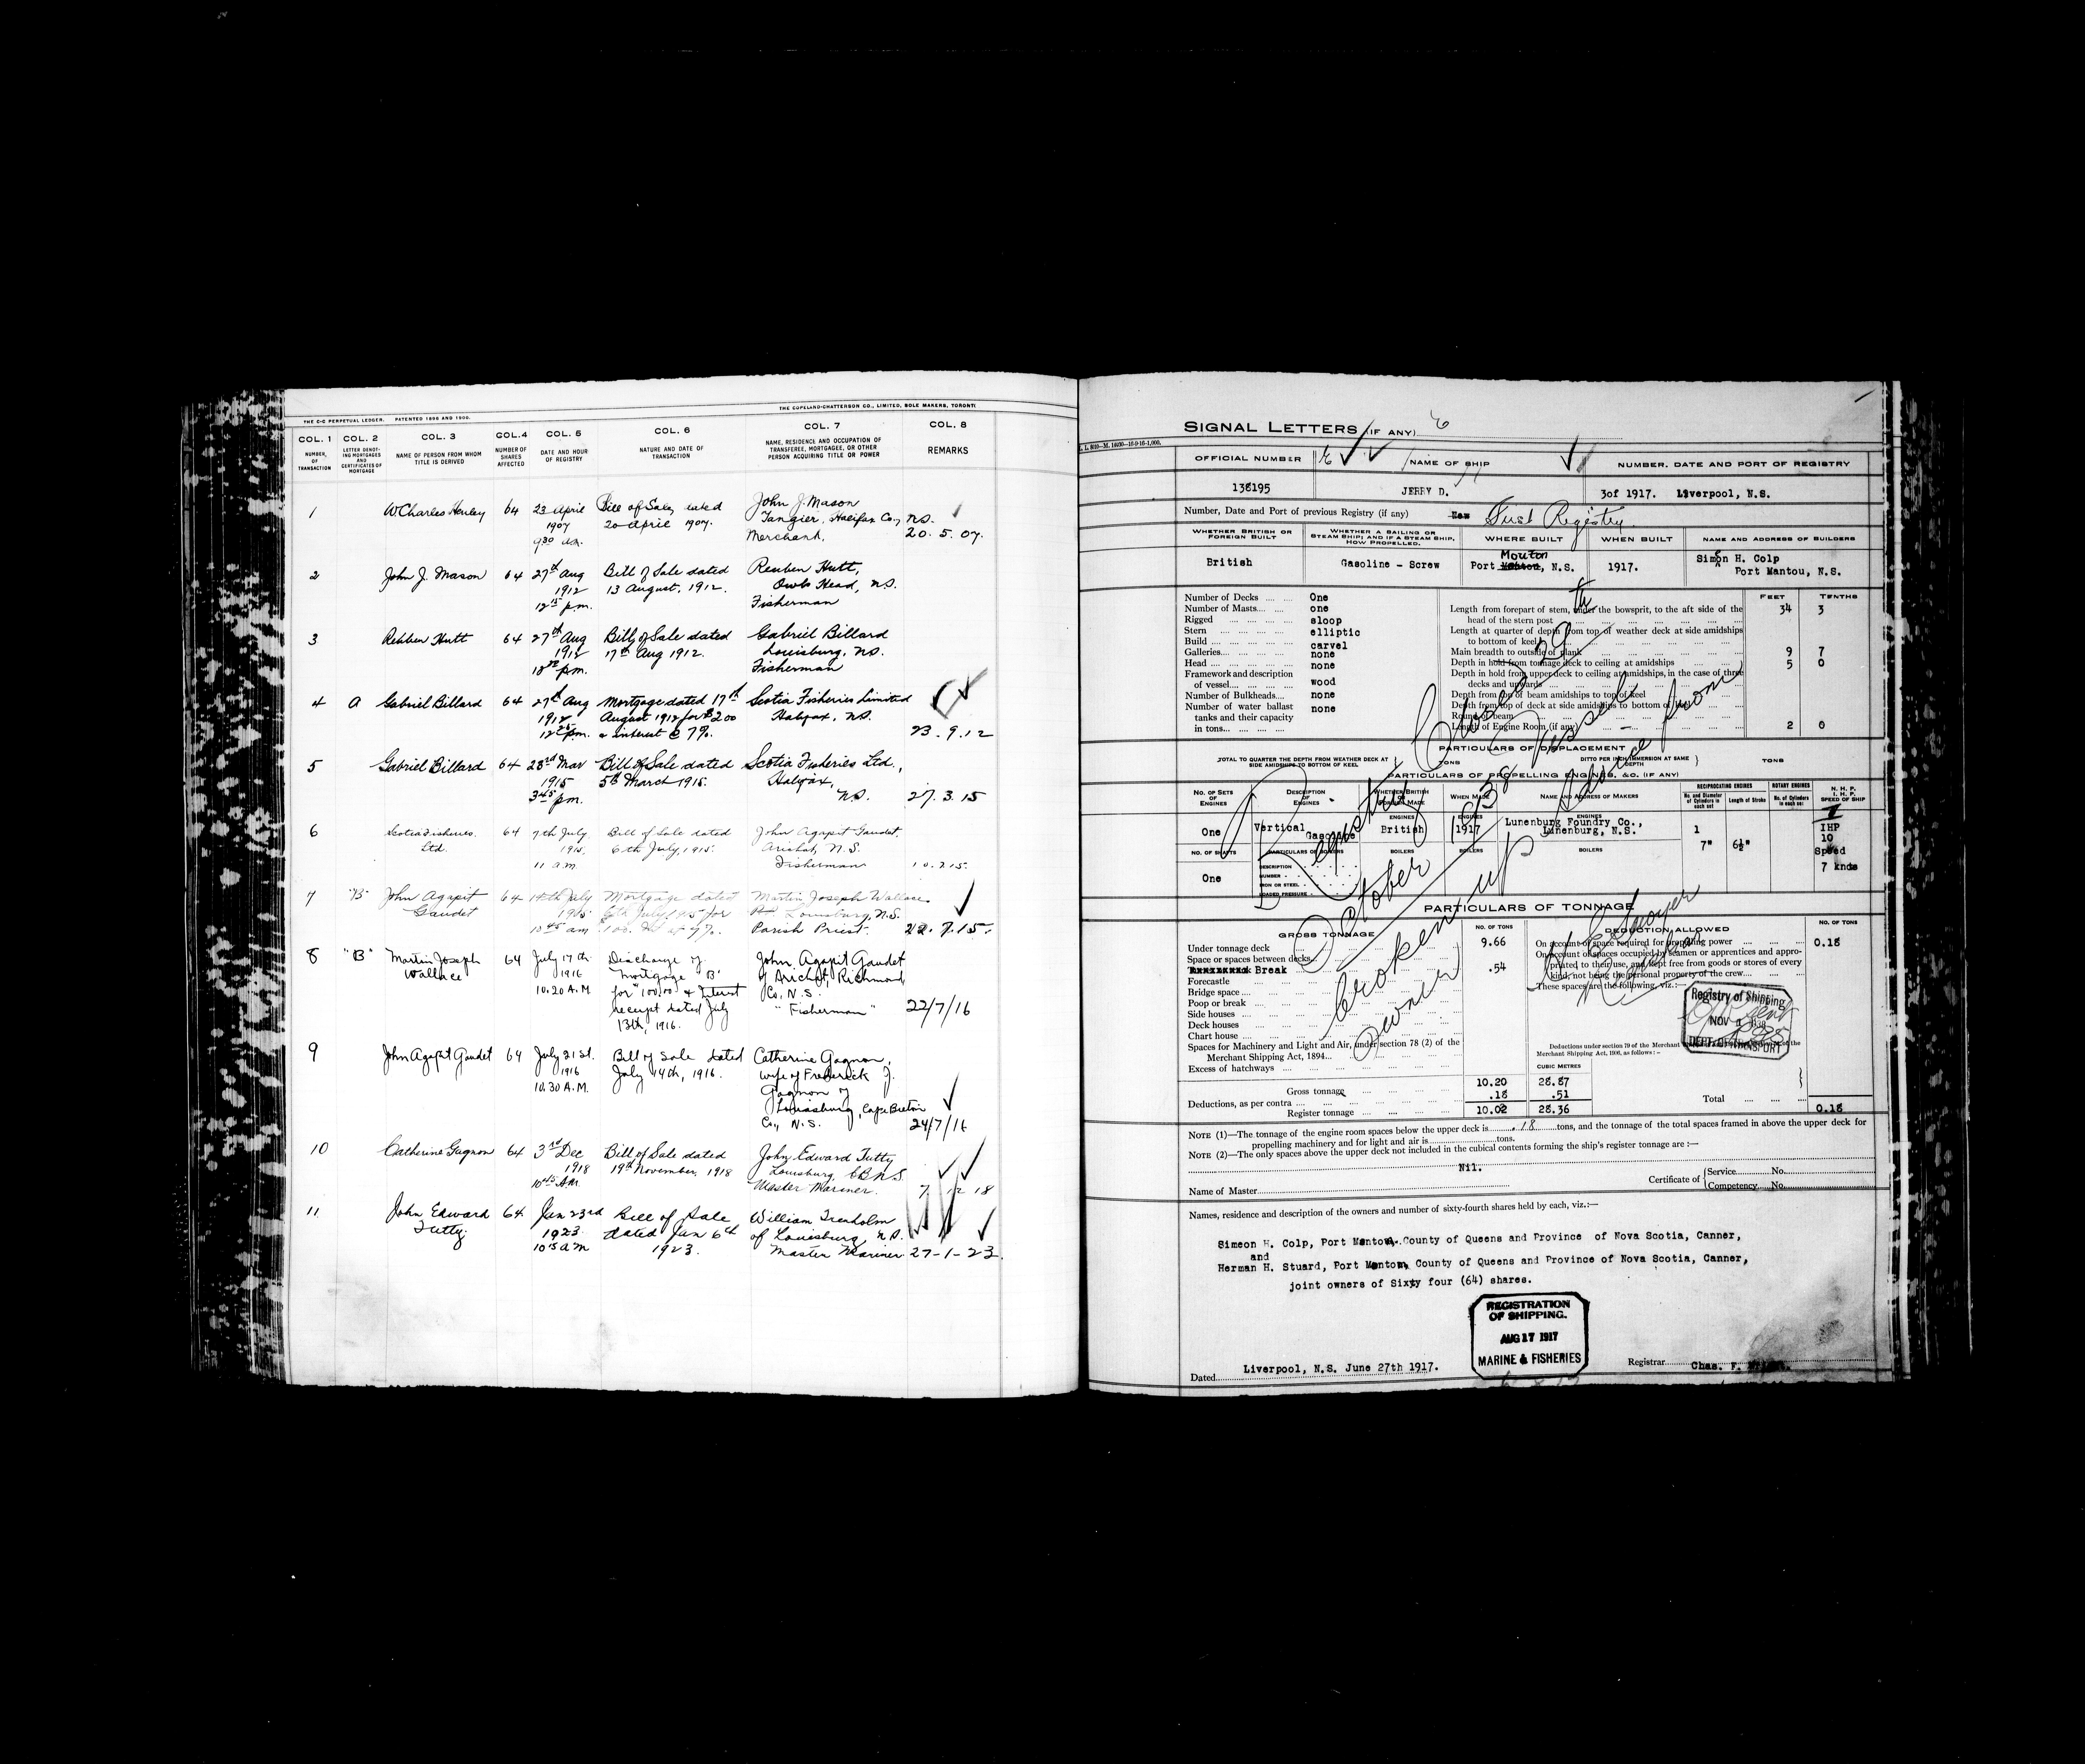 THE C-C PERPETUAL LEDGER. PATENTED 1896 AND 1900.
THE COPELAND-CHATTERSON CO., LIMITED, SOLE MAKERS, TORONTO
COL. 1 COL. 2 COL. 3 COL. 4 COL. 5 COL. 6 COL. 7 COL. 8
NUMBER, OF TRANSACTION
LETTER DENOTING MORTGAGES AND CERTIFICATES OF MORTGAGE
NAME OF PERSON FROM WHOM TITLE IS DERIVED
NUMBER OF SHARES AFFECTED
DATE AND HOUR OF REGISTRY
NATURE AND DATE OF TRANSACTION
NAME, RESIDENCE AND OCCUPATION OF TRANSFEREE, MORTGAGEE, OR OTHER PERSON ACQUIRING TITLE OR POWER
REMARKS
1 W Charles Henley 64 23 April Bill of Sale, dated John J. Mason
1907 20 April 1907. Tangier, Halifax Co., N.S.
9.30 a.m. Merchant. 20. 5. 07.
2 John J. Mason 64 27th Aug Bill of Sale dated Reuben Hutt,
1912 13 August, 1912. Owls Head, N.S.
12 15 p.m. Fisherman
3 Reuben Hutt 64 27th Aug Bill of Sale dated Gabriel Billard
1912 17th Aug 1912. Louisburg, N.S.
p.m. Fisherman
4 A Gabriel Billard 64 27th Aug Mortgage dated 17th Scotia Fisheries Limited
1912 August 1912 for $200 Halifax, N.S.
p.m. & interest @ 7%. 23. 9. 12
5 Gabriel Billard 64 23rd Mar Bill of Sale dated Scotia Fisheries Ltd.,
1915 5th March 1915. Halifax,
3 45 p.m. N.S. 27. 3. 15
6 Scotia Fisheries 64 7th July Bill of Sale dated John Agapit Gaudet.
Ltd. 1915. 6th July, 1915. Arichat, N.S.
11 a.m. Fisherman
7 "B" John Agapit 64 14th July Mortgage dated Martin Joseph Wallace
Gaudet 1915 6th July, 1915 for Louisburg, N.S.
10 45 am at 7%. Parish Priest. 22. 7. 15.
8 "B" Martin Joseph 64 July 17th Discharge of John Agapit Gaudet
Wallace 1916 Mortgage "B" of Arichat, Richmond
10.20 A.M. for $100.00 & Interest Co., N.S.
receipt dated July "Fisherman" 22/7/16
13th, 1916.
9 John Agapit Gaudet 64 July 21st. Bill of Sale dated Catherine Gagnon,
1916 July 14th, 1916. wife of Frederick J.
10.30 A.M. Gagnon of
Louisburg, Cape Breton
Co., N.S. 24/7/16
10 Catherine Gagnon 64 3rd Dec Bill of Sale dated John Edward Tutty
1918 19th November, 1918 Louisburg C.B. N.S.
10 45 A.M. Master Mariner. 7 12 18
11 John Edward 64 Jan 23rd Bill of Sale William Trenholm
Tutty 1923 dated Jan 6th of Louisburg, N.S.
10 15 a m 1923. Master Mariner 27-1-23.
SIGNAL LETTERS (IF ANY)
OFFICIAL NUMBER NAME OF SHIP NUMBER, DATE AND PORT OF REGISTRY
138195 JERRY D. 3of 1917. Liverpool, N.S.
Number, Date and Port of previous Registry (if any) New First Registry
WHETHER BRITISH OR FOREIGN BUILT
WHETHER A SAILING OR STEAM SHIP; AND IF A STEAM SHIP, HOW PROPELLED.
WHERE BUILT WHEN BUILT NAME AND ADDRESS OF BUILDERS
British Gasoline - Screw Port Mouton, N.S. 1917. Simeon H. Colp
Port Mantou, N.S.
Number of Decks One
Number of Masts one
Rigged sloop
Stern elliptic
Build carvel
Galleries none
Head none
Framework and description of vessel wood
Number of Bulkheads none
Number of water ballast tanks and their capacity in tons none
FEET TENTHS
Length from forepart of stem, under the bowsprit, to the aft side of the head of the stern post 34 3
Length at quarter of depth from top of weather deck at side amidships to bottom of keel
Main breadth to outside of plank 9 7
Depth in hold from tonnage deck to ceiling at amidships 5 0
Depth in hold from upper deck to ceiling at amidships, in the case of three decks and upwards
Depth from top of beam amidships to top of keel
Depth from top of deck at side amidships to bottom of keel
Round of beam
Length of Engine Room (if any) 2 0
PARTICULARS OF DISPLACEMENT
TOTAL TO QUARTER THE DEPTH FROM WEATHER DECK AT SIDE AMIDSHIPS TO BOTTOM OF KEEL TONS DITTO PER INCH IMMERSION AT SAME DEPTH TONS
PARTICULARS OF PROPELLING ENGINES, &C. (IF ANY)
NO. OF SETS OF ENGINES DESCRIPTION OF ENGINES WHETHER BRITISH OR FOREIGN MADE WHEN MADE NAME AND ADDRESS OF MAKERS
RECIPROCATING ENGINES ROTARY ENGINES N. H. P. I. H. P. SPEED OF SHIP
No. and Diameter of Cylinders in each set Length of Stroke No. of Cylinders in each set
One Vertical Gasoline British 1917 Lunenburg Foundry Co., Lunenburg, N.S. 1 7" 6½"
IHP
10
Speed
7 knds
NO. OF SHAFTS PARTICULARS OF BOILERS BOILERS BOILERS BOILERS
One
DESCRIPTION
NUMBER
IRON OR STEEL
LOADED PRESSURE
PARTICULARS OF TONNAGE
GROSS TONNAGE NO. OF TONS DEDUCTION ALLOWED NO. OF TONS
Under tonnage deck 9.66
Space or spaces between decks
Break .54
Forecastle
Bridge space
Poop or break
Side houses
Deck houses
Chart house
Spaces for Machinery and Light and Air, under section 78 (2) of the Merchant Shipping Act, 1894
Excess of hatchways
On account of space required for propelling power 0.18
On account of spaces occupied by seamen or apprentices and appropriated to their use, and kept free from goods or stores of every kind, not being the personal property of the crew
These spaces are the following, viz.:—
Registry of Shipping
NOV
DEPT. OF TRANSPORT
CUBIC METRES
Gross tonnage 10.20 28.87
Deductions, as per contra .18 .51
Register tonnage 10.02 28.36
Total 0.18
Registry Closed October 29th 1938 Vessel broken up Advice from owner
NOTE (1)—The tonnage of the engine room spaces below the upper deck is .18 tons, and the tonnage of the total spaces framed in above the upper deck for propelling machinery and for light and air is tons.
NOTE (2)—The only spaces above the upper deck not included in the cubical contents forming the ship's register tonnage are :—
Nil.
Name of Master
Certificate of Service No.
Competency No.
Names, residence and description of the owners and number of sixty-fourth shares held by each, viz.:—
Simeon H. Colp, Port Mouton, County of Queens and Province of Nova Scotia, Canner,
and
Herman H. Stuard, Port Mouton, County of Queens and Province of Nova Scotia, Canner,
joint owners of Sixty four (64) shares.
REGISTRATION
OF SHIPPING.
AUG 17 1917
MARINE & FISHERIES
Dated Liverpool, N.S. June 27th 1917.
Registrar Chas. F.